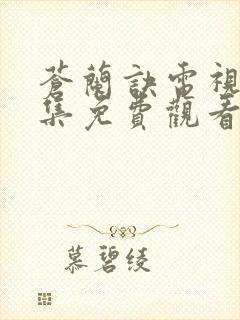 蒼蘭訣電視
集免費觀看
慕碧綾